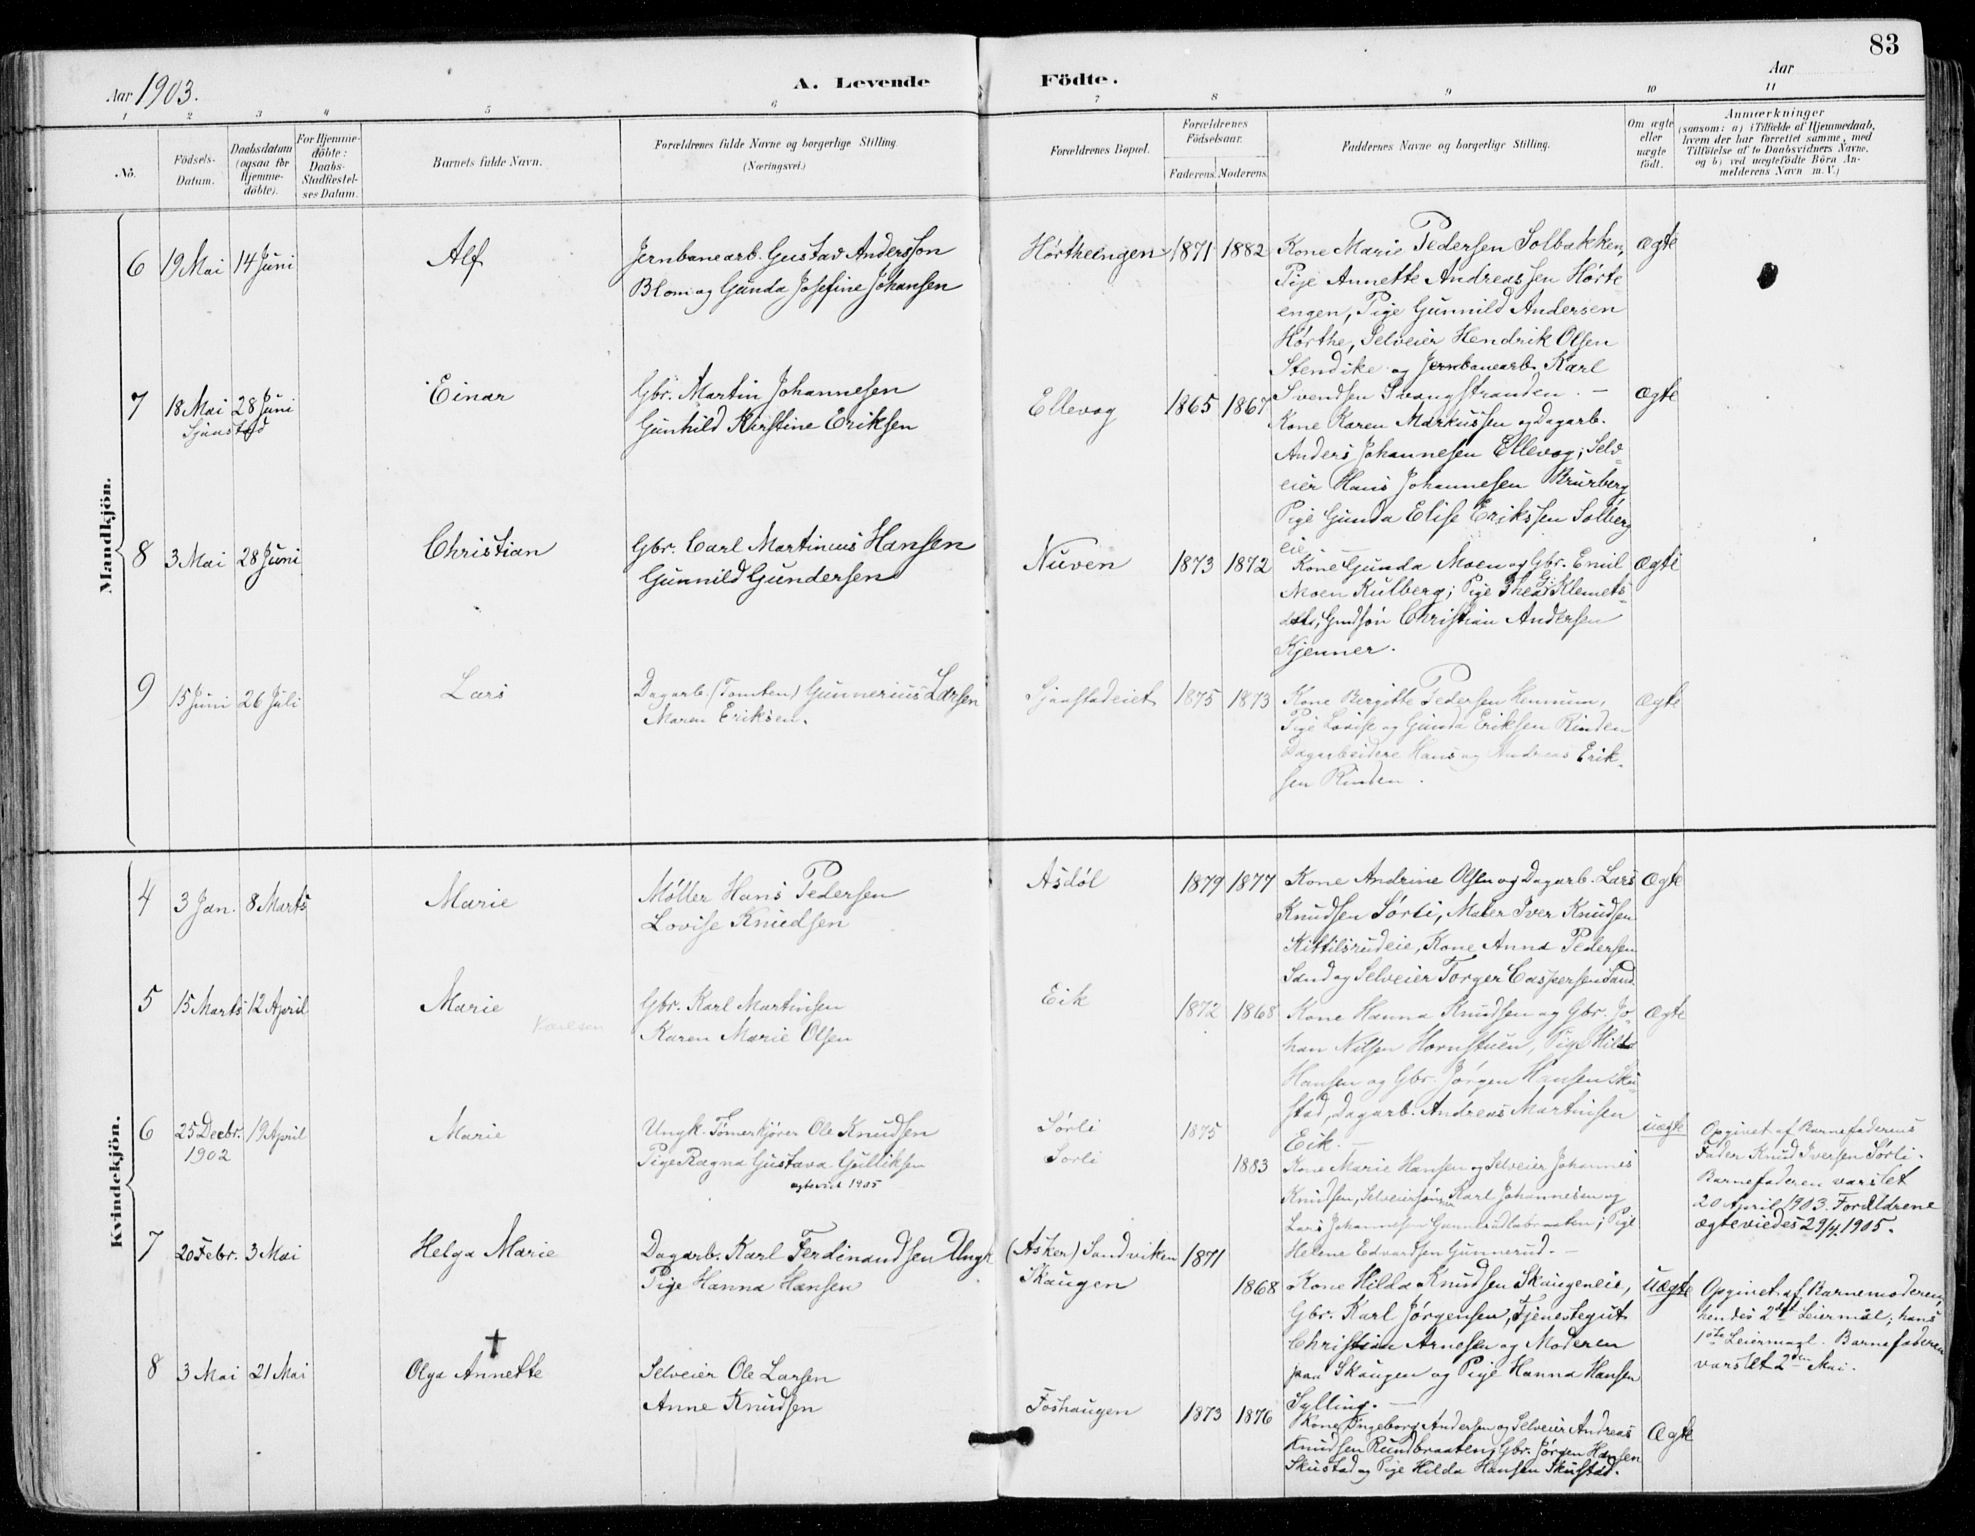 83
Aar 1903.
A. Levende Födte.
Aar
1 2 3 4 5 6 7 8 9 10 11
No.
Födsels-
Datum.
Daabsdatum
(ogsaa for
Hjemme-
döbte).
For Hjemme-
döbte:
Daabs-
Stadfæstel-
ses Datum.
Barnets fulde Navn.
Forældrenes fulde Navne og borgerlige Stilling.
(Næringsvei.)
Forældrenes Bopæl.
Forældrenes
Födselsaar.
Faderens. Moderens.
Faddernes Navne og borgerlige Stilling.
Om ægte
eller
uægte
födt.
Anmærkninger
(saasom: a) i Tilfælde af Hjemmedaab,
hvem der har forrettet samme, med
Tilföielse af to Daabsvidners Navne,
og b) ved uægtefödte Börn An-
melderens Navn m. V.)
Mandkjön.
6 19 Mai 14 Juni
Alf
Jernbanearb. Gustav Andersson
Blom og Gunda Josefine Johansen
Hørtheengen 1871 1882
Kone Marie Pedersen Solbakken,
Pige Annette Andreassen Hørte-
engen, Pige Gunnild Andersen
Hørthe, Selveier Hendrik Olsen
Stendike og Jernbanearb. Karl
Svendsen Svangstranden. –
Ægte
7 18 Mai 28 Juni
Sjaastad
Einar
Gbr. Martin Johannesen
Gunhild Kirstine Eriksen
Ellevog 1865 1867
Kone Karen Markussen og Dagarb.
Anders Johannesen Ellevog; Selv-
eier Hans Johannesen Brurberg
Pige Gunda Elise Erikssen Solberg
eie –
Ægte
8 3 Mai 28 Juni
Christian
Gbr. Carl Martinius Hansen
Gunnild Gundersen
Nuven 1873 1872
Kone Gunda Moen og Gbr. Emil
Moen Kulberg; Pige Thea G. Klemets-
, Gmdsøn Christian Andersen
Kjenner.
Ægte
9 15 Juni 26 Juli
Lars
Dagarb. (Tomten) Gunnerius Larsen
Maren Eriksen.
Sjaastadeiet 1875 1873
Kone Bergitte Pedersen
Pige Lovise og Gunda Eriksen Rinden
Dagarbeidere Hans og Andreas Erik-
sen Rinden.
Ægte
Kvindekjön.
4 3 Jan. 8 Marts
Marie
Møller Hans Pedersen
Lovise Knudsen
Asdøl 1879 1877
Kone Andrine Olsen og Dagarb. Lars
Knudsen Sørli, Maler Iver Knudsen
Kittilsrudeie, Kone Anna Pedersen
Sand og Selveier Torger Caspersen Sand
Ægte
5 15 Marts 12 April
Marie
Karlsen
Gbr. Karl Martinsen
Karen Marie Olsen
Eik 1872 1868
Kone Hanna Knudsen og Gbr. Jo-
han Nilsen Hornstuen, Pige Hilda
Hansen og Gbr. Jørgen Hansen Sku-
stad, Dagarb. Andreas Martinsen
Eik. –
Ægte
6 25 Decbr. 19 April
1902
Marie
Ungk. Tømerkjører Ole Knudsen
Pige Ragna Gustava Gulliksen
ægteviet 1905
Sørli 1875
Sørli 1883
Kone Marie Hansen og Selveier Johannes
Knudsen, Selveiersønner Karl Johannesen og
Lars Johannesen Gunnerudlabraaten; Pige
Helene Edvardsen Gunnerud. –
uægte
Opgivet af Barnefaderens
Fader Knud Iversen Sørli.
Barnefaderen varslet
20 April 1903. Forældrene
ægteviedes 29/4 1905.
7 20 Febr. 3 Mai
Helga Marie
Dagarb. Karl Ferdinandsen Ungk
Pige Hanna Hansen
(Asker) Sandviken 1871
Skaugen 1868
Kone Hilda Knudsen Skaugeneie,
Gbr. Karl Jørgensen, Tjenestegut
Christian Arnesen og Moderen
paa Skaugen og Pige Hanna Hansen
Sylling. –
uægte
Opgivet af Barnemoderen,
hendes 2det Leiermål; hans
1ste Leiermaal. Barnefaderen
varslet 2den Mai.
8 3 Mai 21 Mai
✝
Olga Annette
Selveier Ole Larsen
Anne Knudsen
Foshaugen 1873 1876
Kone Ingeborg Andersen og Selveier Andreas
Knudsen Rundbraaten; Gbr. Jørgen Hansen
Skustad og Pige Hilda Hansen Skustad.
Ægte